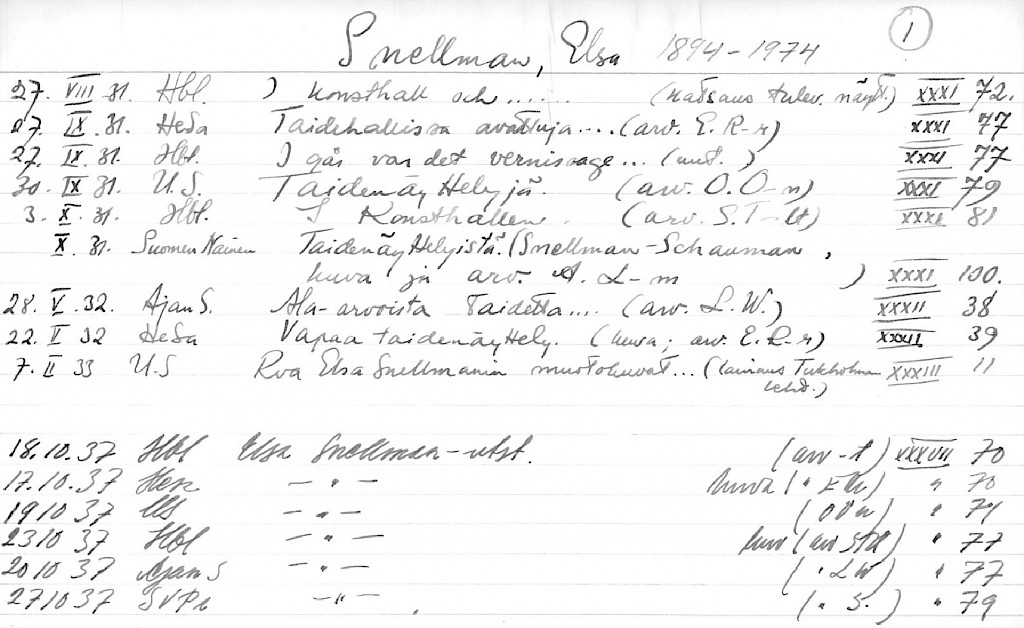 1
Snellman, Elsa 1894-1974
27. VIII 31. Hbl. I konsthall och...... (katsaus tulev. näyt.) XXXI 72.
27. IX. 31. HeSa Taidehallissa avattuja.... (arv. E. R-r) XXXI 77
27. IX. 31. Hbl. I går var det vernissage... (unt. ) XXXI 77
30. IX 31. U.S. Taidenäyttelyjä. (arv. O. O-n) XXXI 79
3. X. 31. Hbl. I Konsthallen. (arv. S. T-lt) XXXI 81
X. 31. Suomen Nainen Taidenäyttelyistä. (Snellman-Schauman,
kuva ja arv. A. L-m ) XXXI 100.
28. V. 32. Ajan S. Ala-arvoista taidetta.... (arv. L.W.) XXXII 38
22. II 32 HeSa Vapaa taidenäyttely. (kuva; arv. E. R-r) XXXII 39
7. II 33 U.S Rva Elsa Snellmanin muotokuvat... (lainaus Tukholman XXXIII 11
lehd.)
18.10.37 Hbl Elsa Snellman-utst. (arv -t) XXXVII 70
17.10.37 — " — kuva (" ) " 70
19 10 37 US — " — ( ) " 74
23 10 37 Hbl — " — kuv (arv ) " 77
20 10 37 Ajan S — " — (" LW) " 77
27 10 37 SvPr — " — . (" S.) " 79